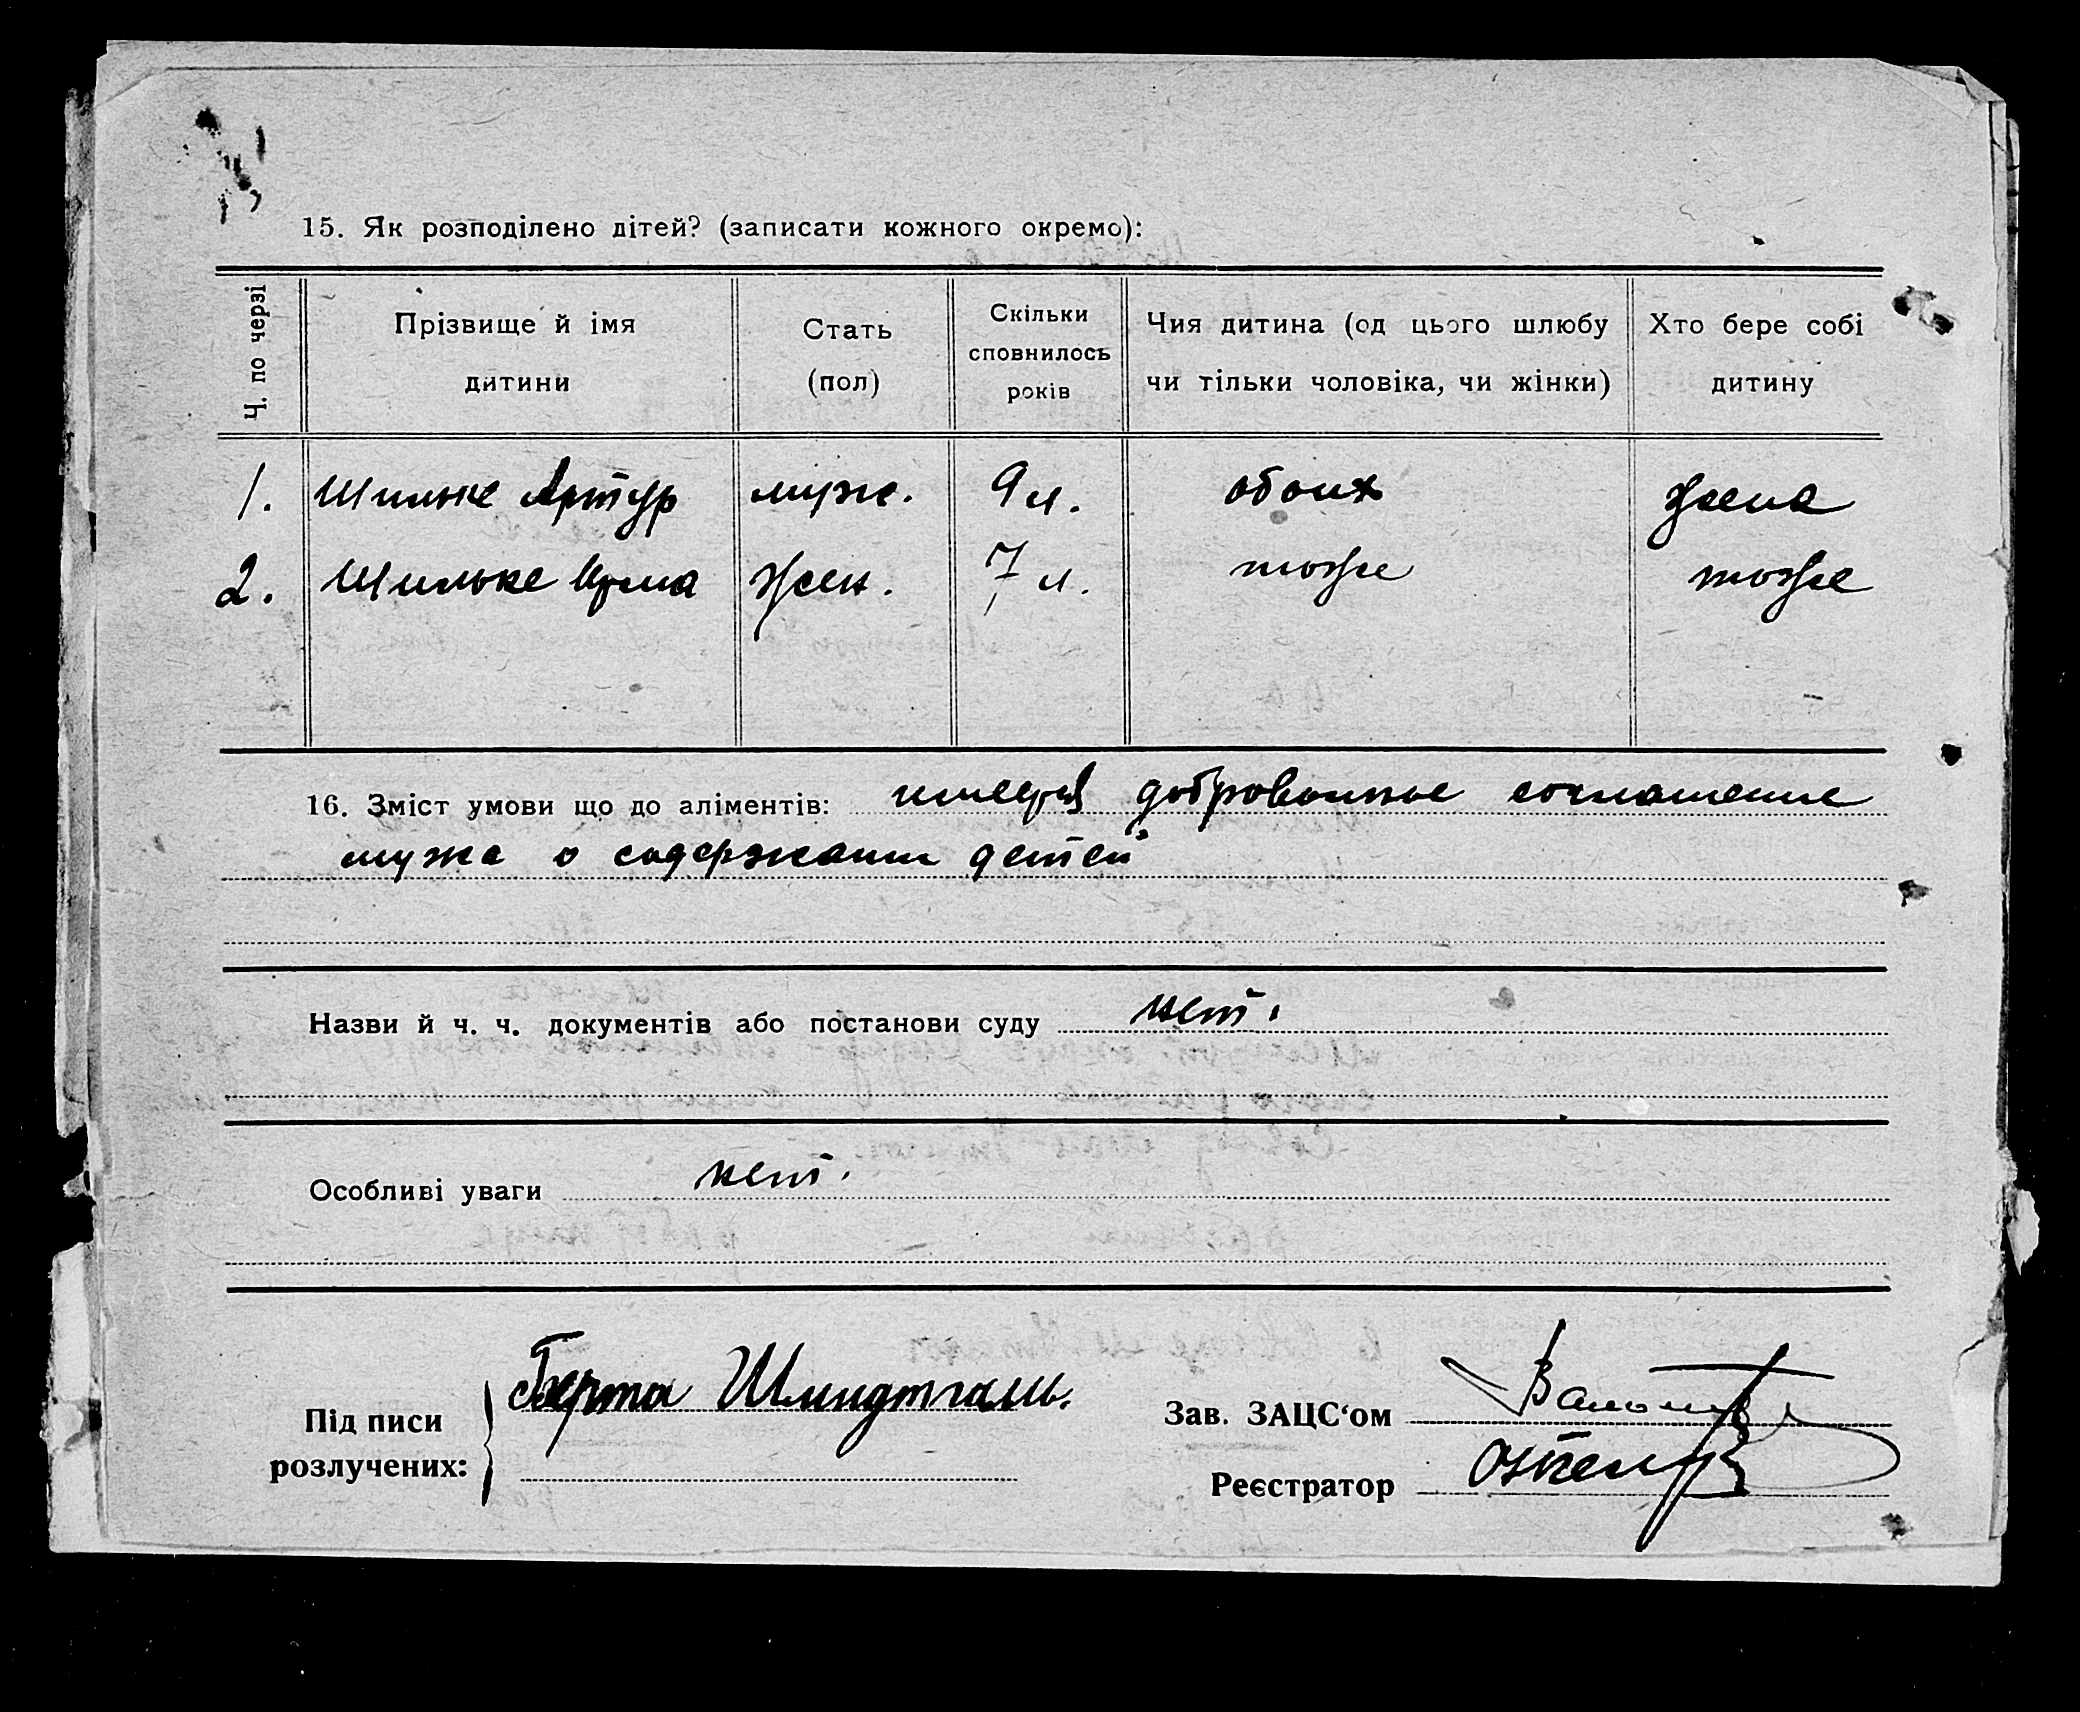 15. Як розподілено дітей? (записати кожного окремо):
Ч. по черзі
Прізвище й імя
дитини
Стать
(пол)
Скільки
сповнилось
років
Чия дитина (од цього шлюбу
чи тільки чоловіка, чи жінки)
Хто бере собі
дитину
1. Шильке Артур муж. 9 л. обоих жена
2. Шильке Ирма жен. 7 л. тоже тоже
16. Зміст умови що до аліментів: имеется добровольное соглашение
мужа о содержании детей
Назви й ч. ч. документів або постанови суду нет.
Особливі уваги нет.
Під писи
розлучених:
Берта
Зав. ЗАЦС‘ом
Реєстратор